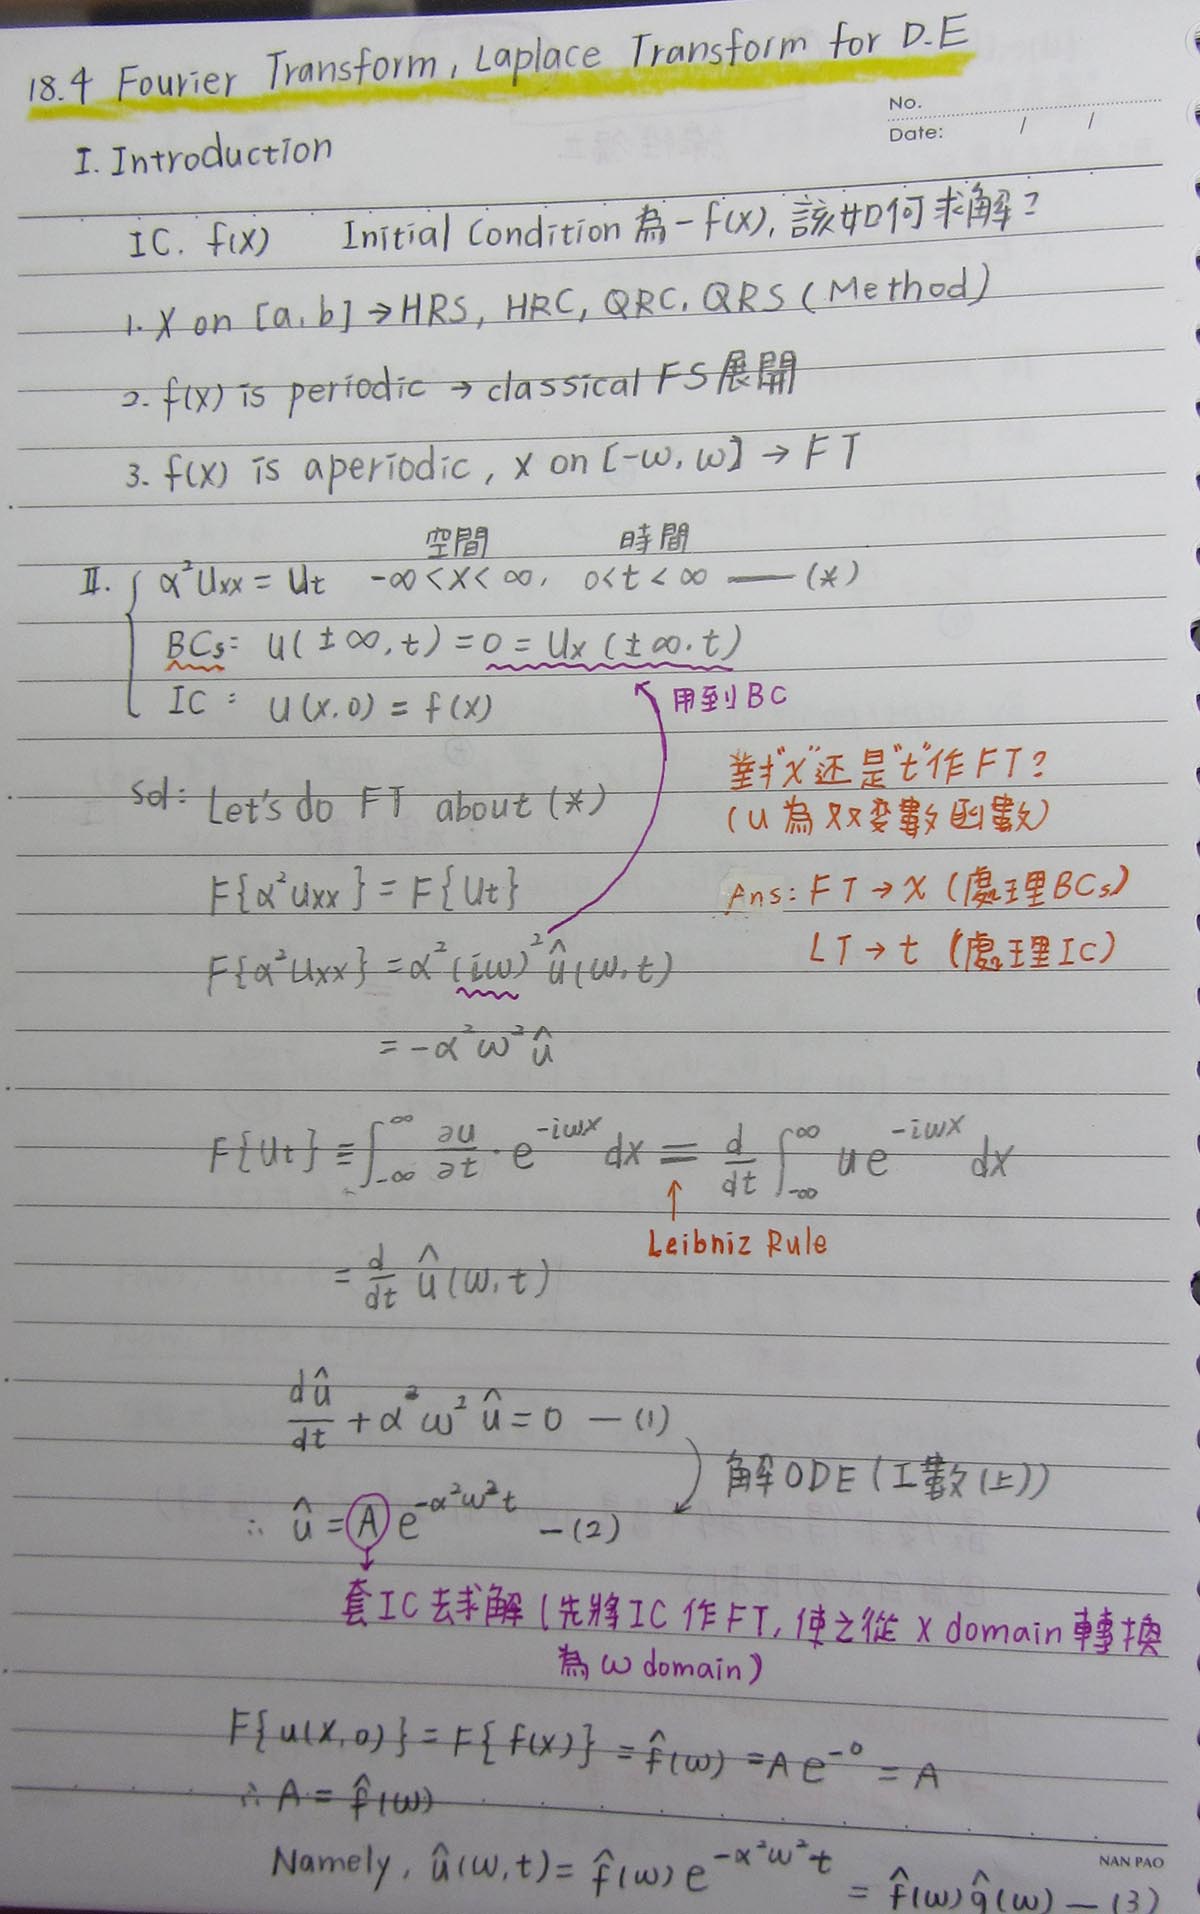 18.4 Fourier Transform, Laplace Transform for D.E
No.
Date: / /
I. Introduction
IC. f(x) Initial Condition 為一f(x), 該如何求解?
1. X on [a,b] → HRS, HRC, QRC, QRS (Method)
2. f(x) is periodic → classical FS 展開
3. f(x) is aperiodic, x on [-ω, ω] → FT
空間 時間
II. α²Uxx = Ut -∞<x<∞, 0<t<∞ —— (*)
BCs: U(±∞,t) = 0 = Ux(±∞,t)
用到BC
IC: U(x,0) = f(x)
對"x"還是"t"作FT?
Sol: Let's do FT about (*)
(U為双変數函數)
F{α²Uxx} = F{Ut}
Ans: FT → x (處理BCs)
F{α²Uxx} = α²(iω)²û(ω,t)
LT → t (處理IC)
= -α²ω²û
F{Ut} ≡ ∫_{-∞}^{∞} ∂u/∂t · e^{-iωx} dx = d/dt ∫_{-∞}^{∞} u e^{-iωx} dx
↑
Leibniz Rule
= d/dt û(ω,t)
dû/dt + α²ω²û = 0 —(1)
解ODE(工數(上))
∴ û = A e^{-α²ω²t} —(2)
套IC去求解(先將IC作FT, 使之從 x domain 轉換
為 ω domain)
F{u(x,0)} = F{f(x)} = f̂(ω) = A e^{-0} = A
∴ A = f̂(ω)
NAN PAO
Namely, û(ω,t) = f̂(ω) e^{-α²ω²t} = f̂(ω)ĝ(ω) —(3)